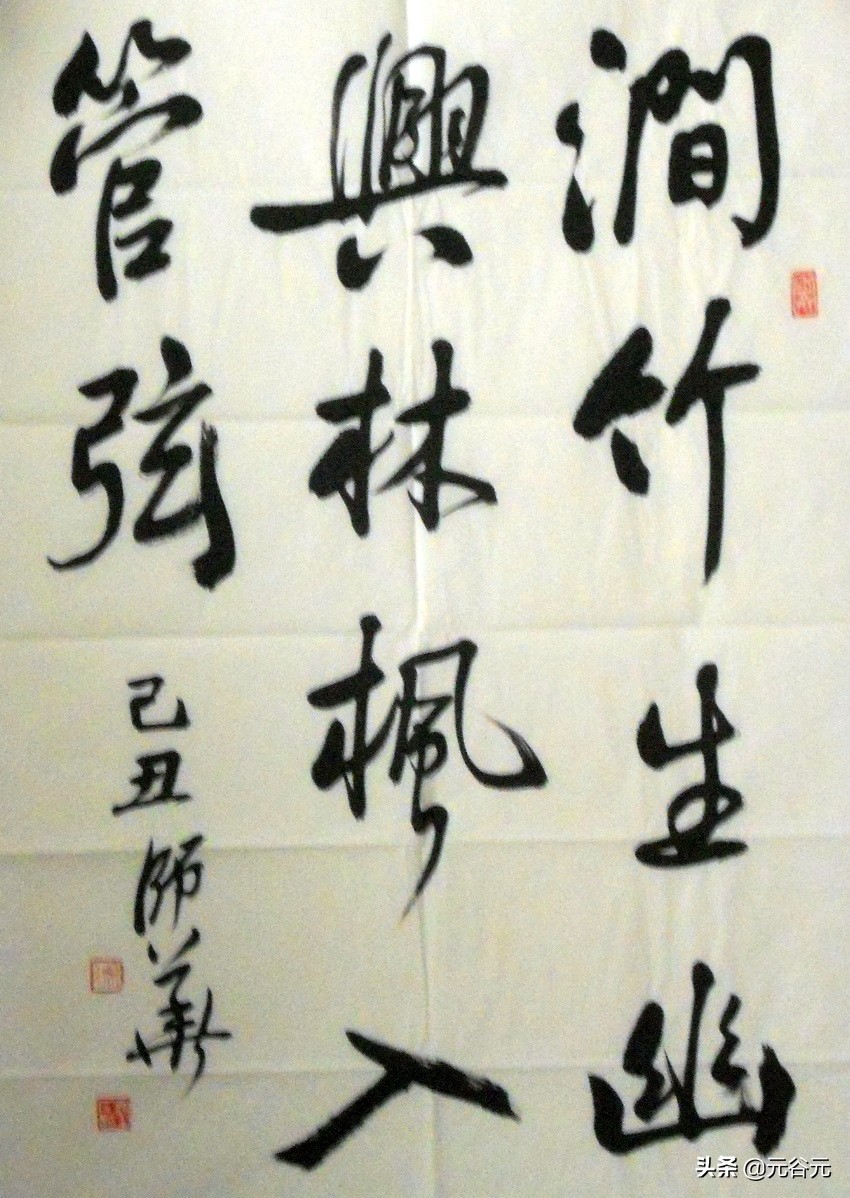 澗竹生幽
興林楓入
管弦
己丑師义舜
头条 @元谷元